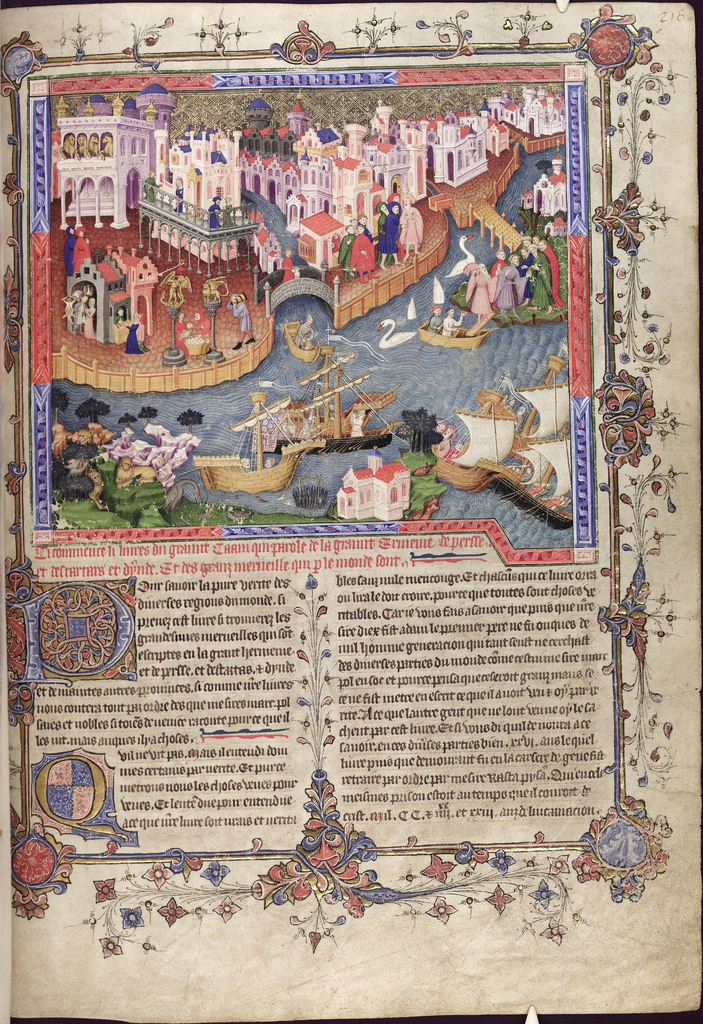 218
Ci commence li liures du graunt Caam qui parole de la graunt Ermenie de persse
et des tartars et dynde. Et des granz merueilles qui p le monde sont
Pour sauoir la pure verite des
diuerses regions du monde. si
prenez cest liure si trouuerez les
grandismes merueilles qui sont
escriptes en la grant hermenie
et de persse. et des tartas, et dynde
et de maintes autres prouinces, si comme nre liures
nous contera tout par ordre des que me sires marc pol
saiges et nobles citoiens de uenice raconte pour ce que il
les uit. mais auques il y a choses.
Quil ne vit pas. Mais il entendi dom
mes certains par verite. Et pur ce
metrons nous les choses veues pour
veues. Et lentendue pour entendue
A ce que nre liure soit urais et uerita
bles sanz nulle mencongne. Et chascuns qui ce liure orra
ou lira le doit croire, pource que toutes sont choses ve
ritables. Car ie vous fais asauoir que puis que nre
sire diex fist adam le premier pere ne fu onques de
nul homme generacion qui tant seust ne cerchast
des diuerses parties du monde comme cestui me sire marc
pol en soet et pource pensa que ce seroit granz maus se
ce ne fist metre en escrit ce que il auoit veu et oy par ve
rite. A ce que lautre gent que ne lont veu ne oy le sa
chent par cest liure. Et si vous di quil demoura a ce
sauoir. en ces diuerses parties bien .xxvi. ans le quel
liure puis que demourant fu en la carsere de gene fist
retraire par ordre par me sire Rasta pysa. Qui en cele
meismes prison estoit au temps que il couroit de
crist. Mil. CC. et XVIII. anz de lincarnacion.